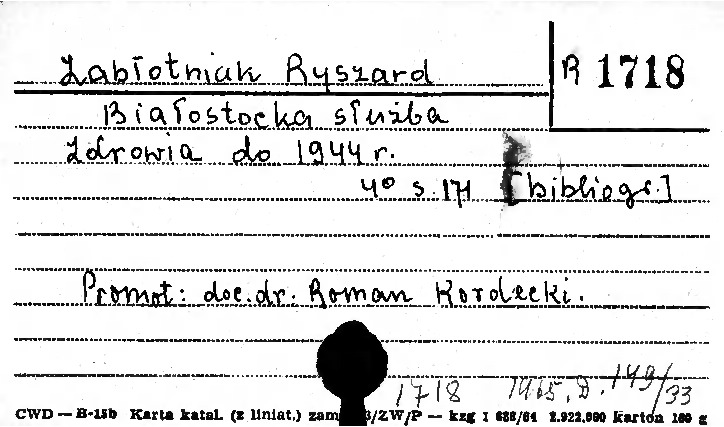 Zabłotniak Ryszard
R 1718
Białostocka służba
Zdrowia do 1944 r.
4° s. 171 [bibliogr.]
Promot: doc. dr. Roman Kordecki.
1718 1965.D. 149/33
CWD — B-15b Karta katal. (z liniat.) zam. 3/ZW/P — kzg I 688/64 2.922.000 karton 160 g